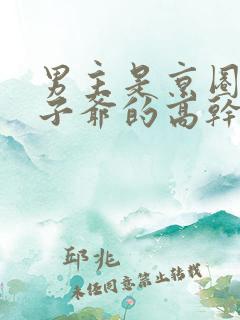 男主是京圈
子爺的高幹
邱兆
未经同意禁止转载